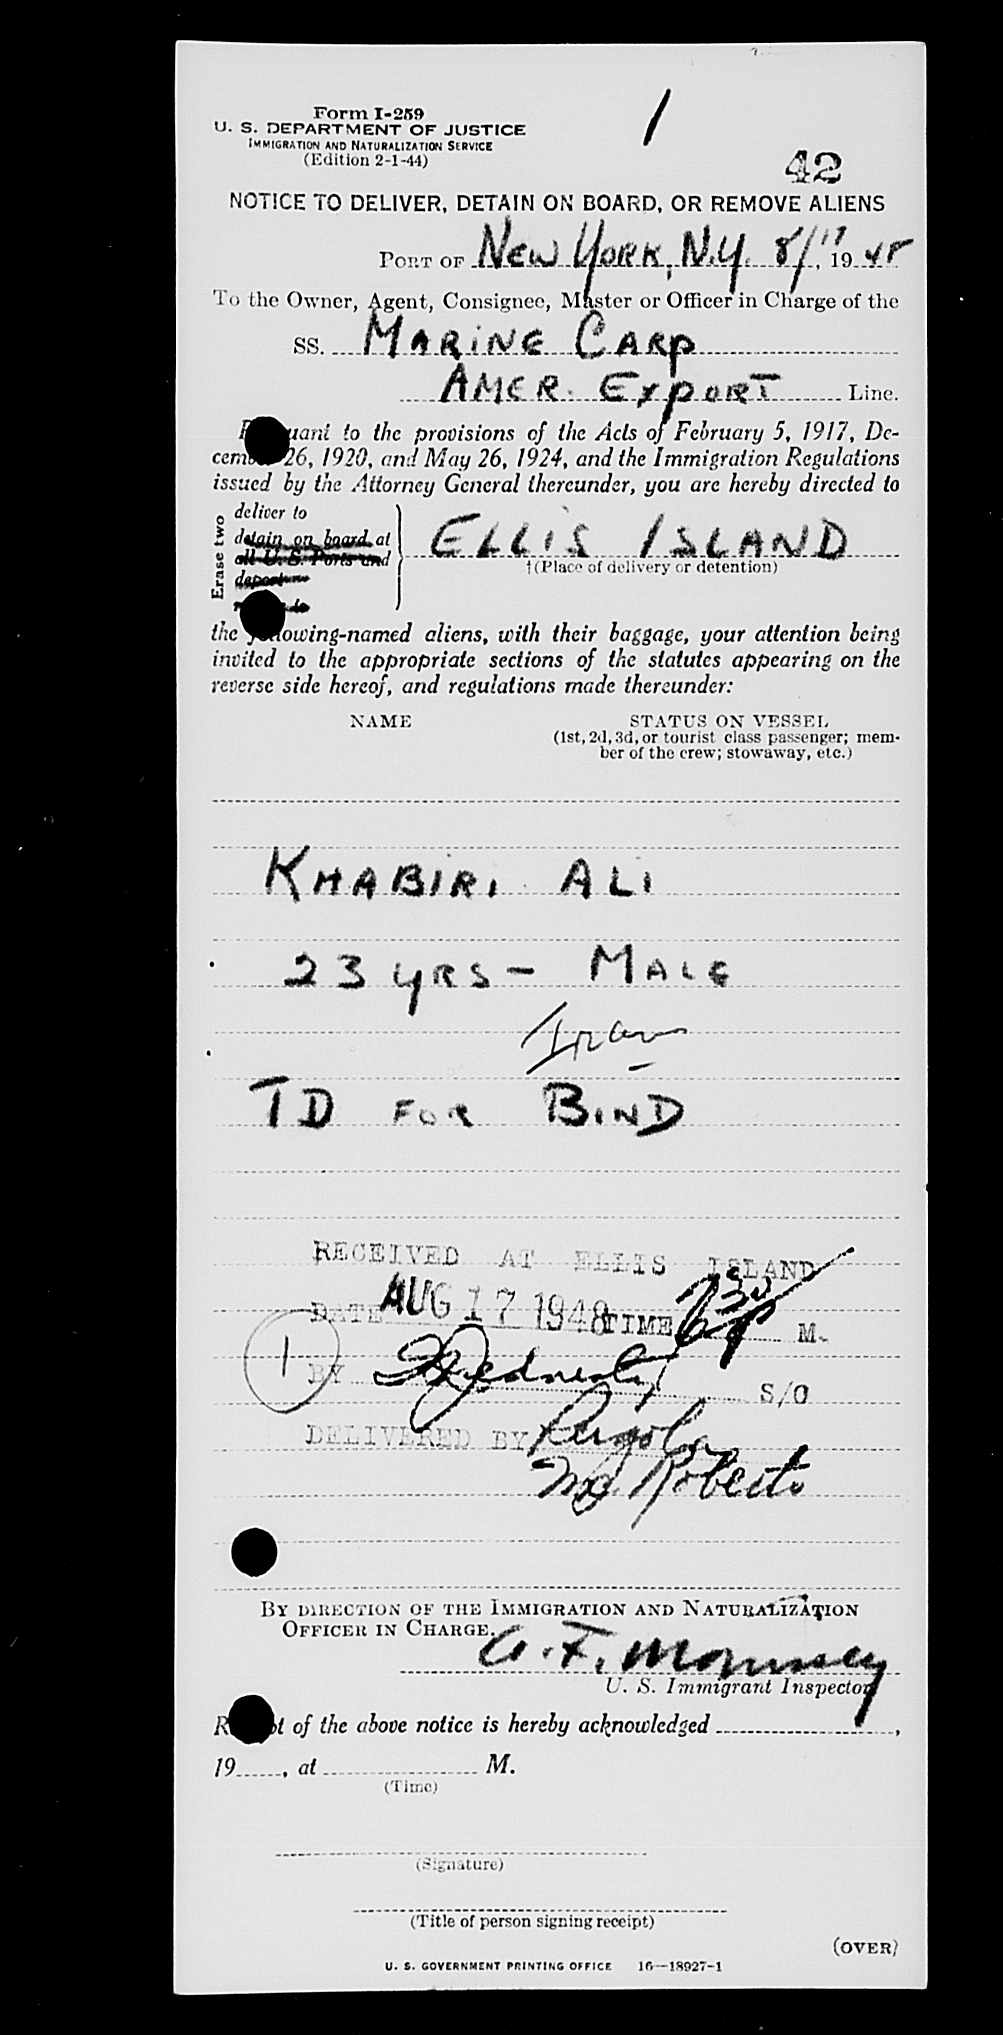 Form I-259
U. S. DEPARTMENT OF JUSTICE
IMMIGRATION AND NATURALIZATION SERVICE
(Edition 2-1-44)
1
42
NOTICE TO DELIVER, DETAIN ON BOARD, OR REMOVE ALIENS
PORT OF NEW YORK, N.Y. 8/17, 19 48
To the Owner, Agent, Consignee, Master or Officer in Charge of the
SS. MARINE CARP
AMER. EXPORT Line.
to the provisions of the Acts of February 5, 1917, De-
26, 1920, and May 26, 1924, and the Immigration Regulations
issued by the Attorney General thereunder, you are hereby directed to
Erase two
deliver to
detain on board at
all U. S. Ports and
deport
to
ELLIS ISLAND
†(Place of delivery or detention)
the following-named aliens, with their baggage, your attention being
invited to the appropriate sections of the statutes appearing on the
reverse side hereof, and regulations made thereunder:
NAME
STATUS ON VESSEL
(1st, 2d, 3d, or tourist class passenger; mem-
ber of the crew; stowaway, etc.)
KHABIRI ALI
23 YRS - MALE
Iran
TD FOR BOND
RECEIVED AT ELLIS ISLAND
DATE AUG 17 1948 TIME 730 P M.
1
BY S/O
DELIVERED BY Pergola
Roberto
BY DIRECTION OF THE IMMIGRATION AND NATURALIZATION
OFFICER IN CHARGE.
U. S. Immigrant Inspector
of the above notice is hereby acknowledged ,
19 , at M.
(Time)
(Signature)
(Title of person signing receipt)
(OVER)
U. S. GOVERNMENT PRINTING OFFICE 16—18927-1